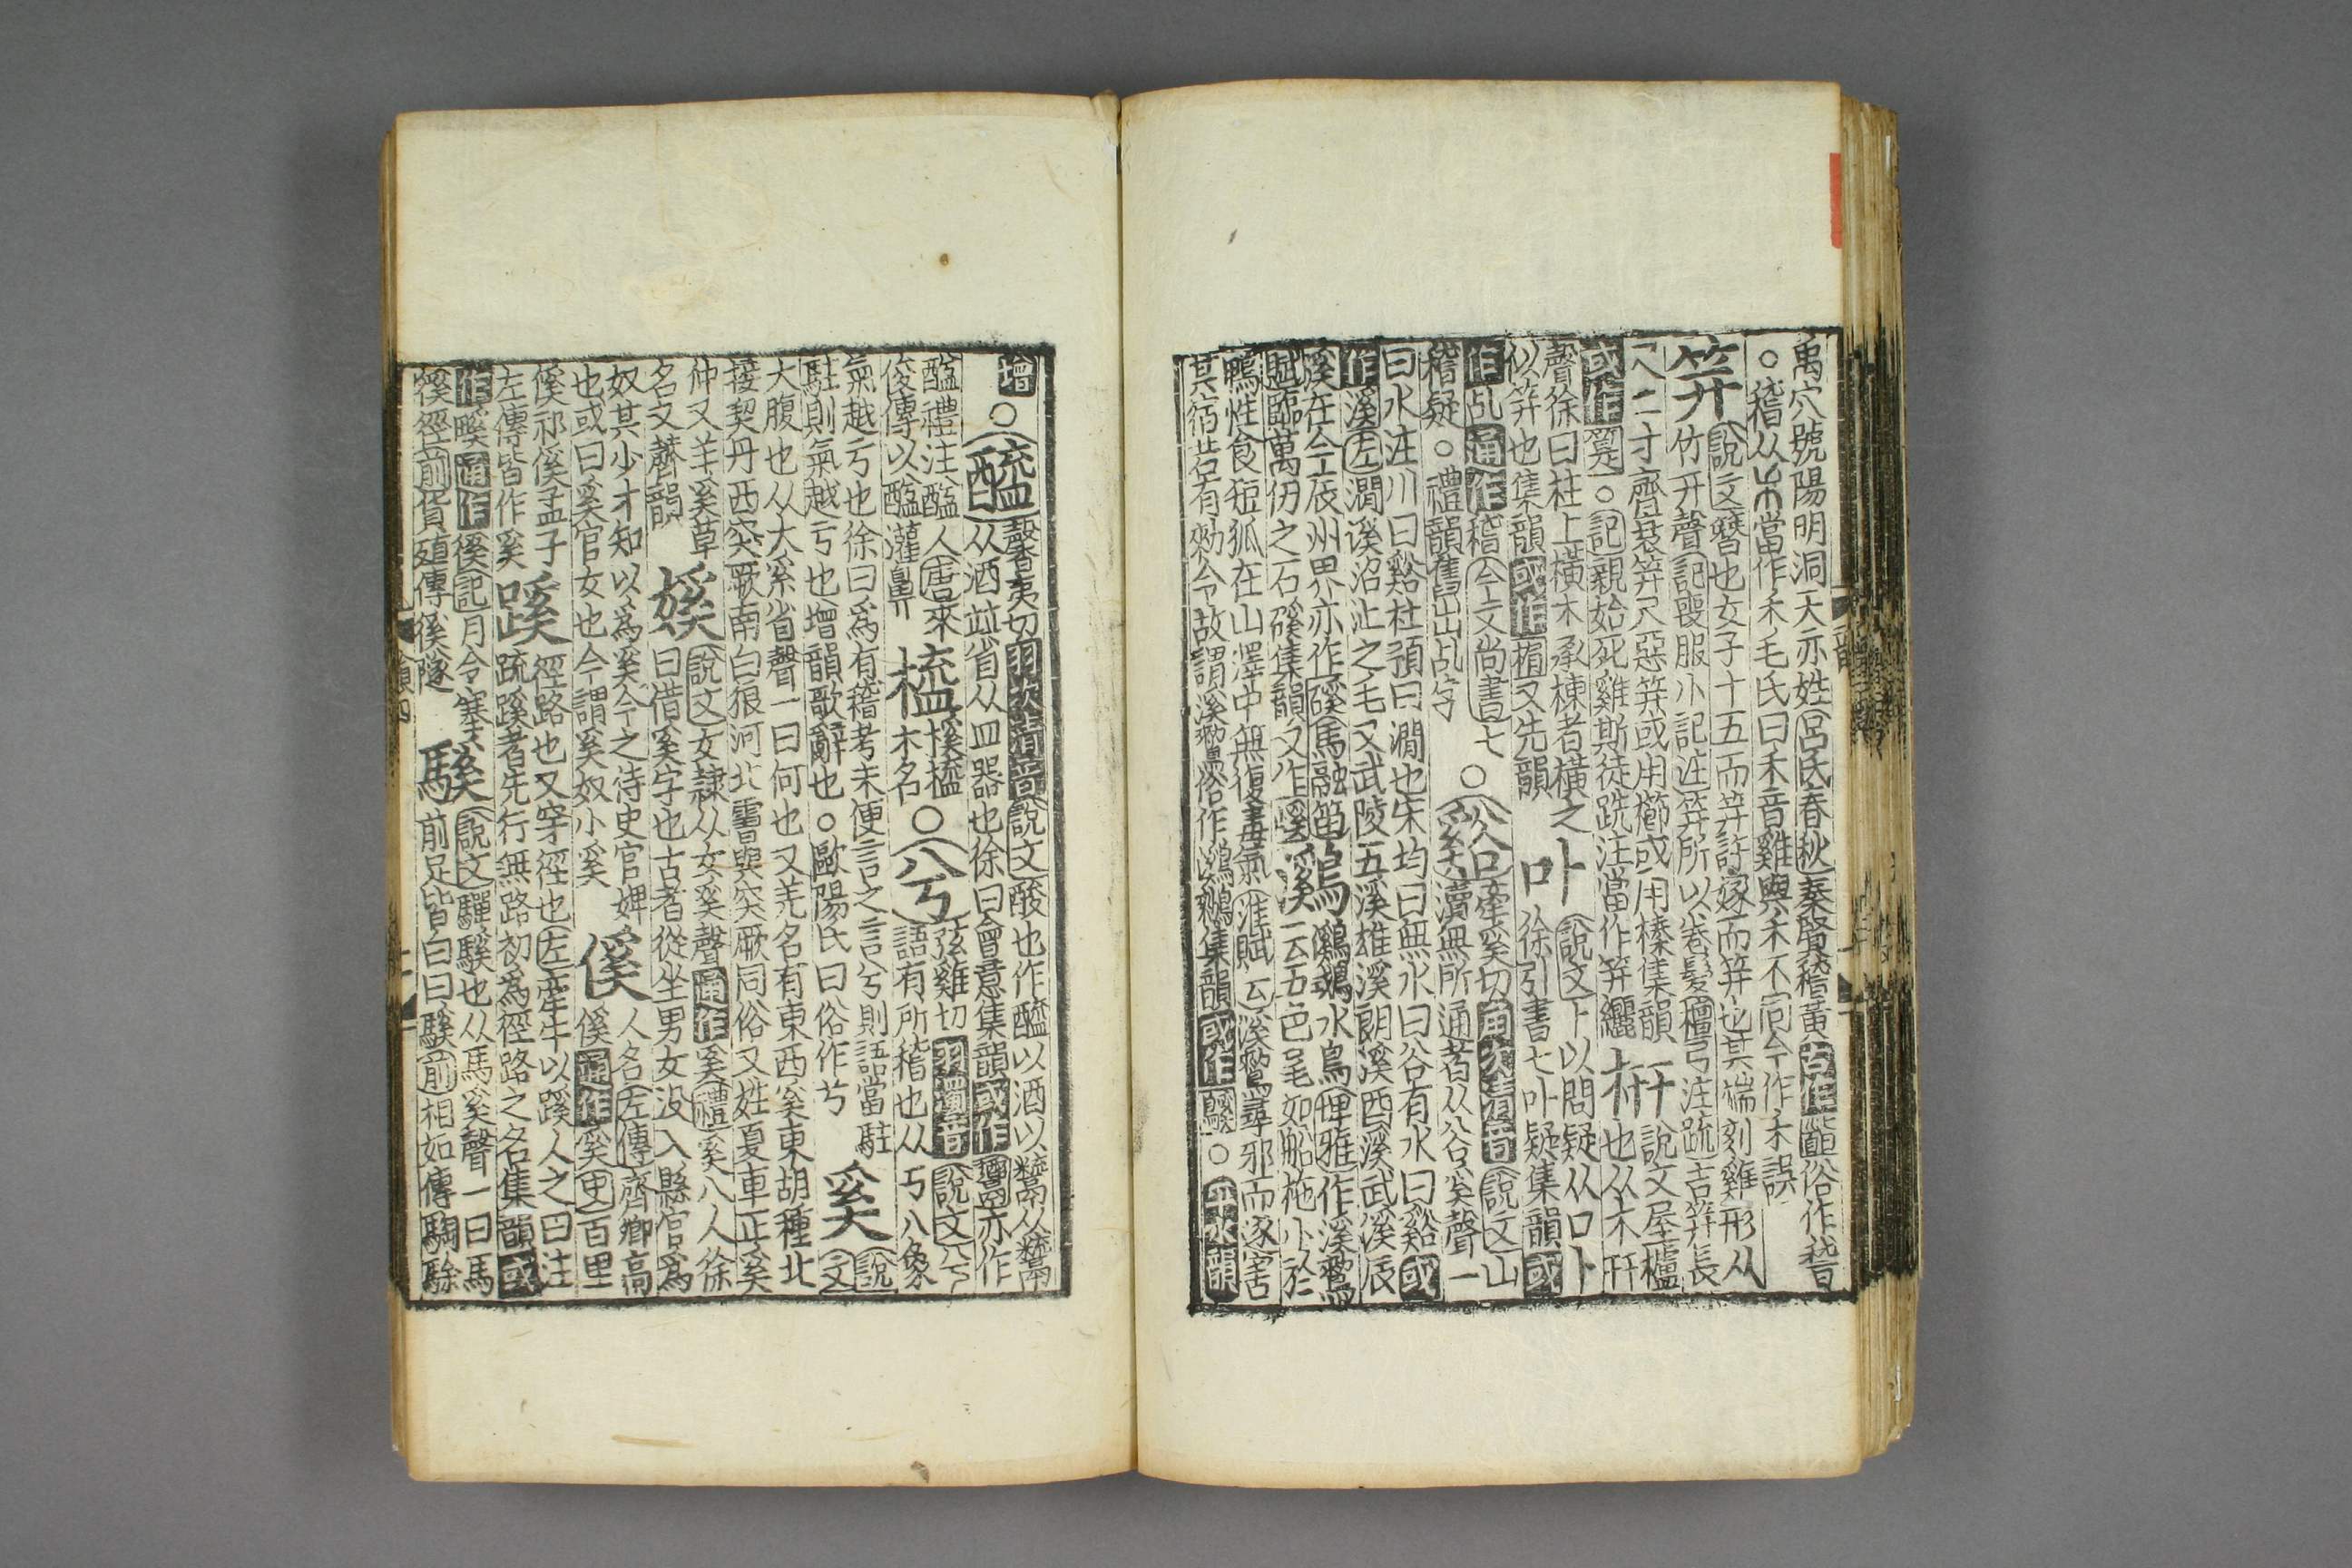 禹穴號陽明洞天亦姓呂氏春秋秦賢稽黃古作䭫俗作嵇
○稽从𥝌當作禾毛氏曰禾音雞與禾不同今作禾誤
笄說文簪也女子十五而笄許嫁而笄也其端刻雞形从
竹幵聲記喪服小記注笄所以卷髮檀弓注疏吉笄長
尺二寸齊衰笄尺惡笄或用櫛或用榛集韻
或作筓○記親始死雞斯徒跣注當作笄纚
枅說文屋櫨也从木幵
聲徐曰柱上橫木承棟者橫之
似笄也集韻或作楣又先韻
卟說文卜以問疑从口卜
徐引書七卟疑集韻或
作乩通作稽今文尚書七
稽疑○禮韻舊出乩字
○谿牽奚切角次清音說文山
瀆無所通者从谷奚聲一
曰水注川曰谿杜預曰澗也宋均曰無水曰谷有水曰谿或
作溪左澗溪沼沚之毛又武陵五溪雄溪朗溪酉溪武溪辰
溪在今辰州界亦作磎馬融笛
賦臨萬仞之石磎集韻又作嵠
鸂鸂鶒水鳥埤雅作溪鶒
一云五色毛如船柂小於
鴨性食短狐在山澤中無復毒氣淮賦云溪鶒尋邪而逐害
其宿若有勑令故謂溪鶒俗作鸂鶒集韻或作○平水韻
增○醯馨夷切羽次清音說文酸也作醯以酒以鬻从鬻
从酒竝省从皿器也徐曰會意集韻或作亦作
醯禮注醯人唐來
俊傳以醯灌鼻
榼榽榼
木名
○兮弦雞切羽濁音說文兮
語有所稽也从丂八象
氣越亏也徐曰爲有稽考未便言之言兮則語當駐
駐則氣越亏也增韻歌辭也○歐陽氏曰俗作兮
奚說文
大腹也从大系省聲一曰何也又羌名有東西奚東胡種北
接契丹西突厥南白狼河北霫與突厥同俗又姓夏車正奚
仲又羊奚草
名又薺韻
嫨說文女隷从女奚聲通作奚禮奚八人徐
曰借奚字也古者從坐男女没入縣官爲
奴其少才知以爲奚今之侍史官婢
也或曰奚官女也今謂奚奴小奚
傒人名左傳齊卿高
傒通作奚史百里
傒祁傒孟子
左傳皆作奚
蹊徑路也又穿徑也左牽牛以蹊人之田注
疏蹊者先行無路初爲徑路之名集韻或
作𤲺通作徯記月令塞
徯徑前貨殖傳徯隧
騱說文驒騱也从馬奚聲一曰馬
前足皆白曰騱前相如傳騊駼